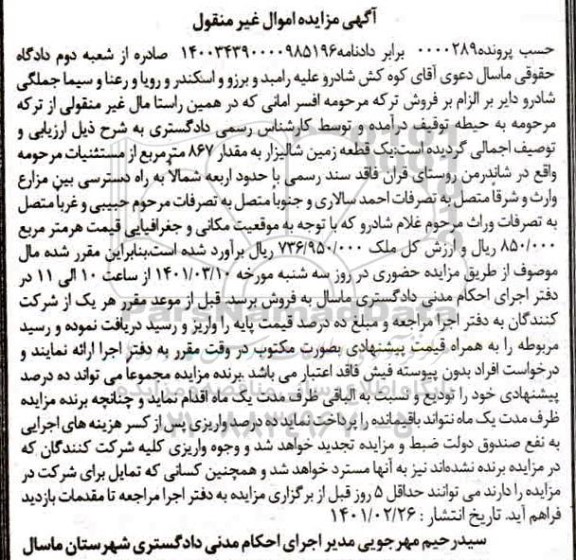 آگهی مزایده اموال غیر منقول
حسب پرونده۰۰۰۰۲۸۹ برابر دادنامه۱۴۰۰۳۴۳۹۰۰۰۰۹۸۵۱۹۶ صادره از شعبه دوم دادگاه
حقوقی ماسال دعوی آقای کوه کش شادرو علیه رامبد و برزو و اسکندر و رویا و رعنا و سیما جملگی
شادرو دایر بر الزام بر فروش ترکه مرحومه افسر امانی که در همین راستا مال غیر منقولی از ترکه
مرحومه به حیطه توقیف درآمده و توسط کارشناس رسمی دادگستری به شرح ذیل ارزیابی و
توصیف اجمالی گردیده است:یک قطعه زمین شالیزار به مقدار ۸۶۷ مترمربع از مستثنیات مرحومه
واقع در شاندرمن روستای قران فاقد سند رسمی با حدود اربعه شمالاً به راه دسترسی بین مزارع
وارث و شرقاً متصل به تصرفات احمد سالاری و جنوباً متصل به تصرفات مرحوم حبیبی و غرباً متصل
به تصرفات وراث مرحوم غلام شادرو که با توجه به موقعیت مکانی و جغرافیایی قیمت هرمتر مربع
۸۵۰/۰۰۰ ریال و ارزش کل ملک ۷۳۶/۹۵۰/۰۰۰ ریال برآورد شده است.بنابراین مقرر شده مال
موصوف از طریق مزایده حضوری در روز سه شنبه مورخه ۱۴۰۱/۰۳/۱۰ از ساعت ۱۰ الی ۱۱ در
دفتر اجرای احکام مدنی دادگستری ماسال به فروش برسد. قبل از موعد مقرر هر یک از شرکت
کنندگان به دفتر اجرا مراجعه و مبلغ ده درصد قیمت پایه را واریز و رسید دریافت نموده و رسید
مربوطه را به همراه قیمت پیشنهادی بصورت مکتوب در وقت مقرر به دفتر اجرا ارائه نمایند و
درخواست افراد بدون پیوسته فیش فاقد اعتبار می باشد .برنده مزایده مجموعا می تواند ده درصد
پیشنهادی خود را تودیع و نسبت به الباقی ظرف مدت یک ماه اقدام نماید و چنانچه برنده مزایده
ظرف مدت یک ماه نتواند باقیمانده را پرداخت نماید ده درصد واریزی پس از کسر هزینه های اجرایی
به نفع صندوق دولت ضبط و مزایده تجدید خواهد شد و وجوه واریزی کلیه شرکت کنندگان که
در مزایده برنده نشده‌اند نیز به آنها مسترد خواهد شد و همچنین کسانی که تمایل برای شرکت در
مزایده را دارند می توانند حداقل ۵ روز قبل از برگزاری مزایده به دفتر اجرا مراجعه تا مقدمات بازدید
فراهم آید. تاریخ انتشار : ۱۴۰۱/۰۲/۲۶
سیدرحیم مهرجویی مدیر اجرای احکام مدنی دادگستری شهرستان ماسال
ParsNamadData